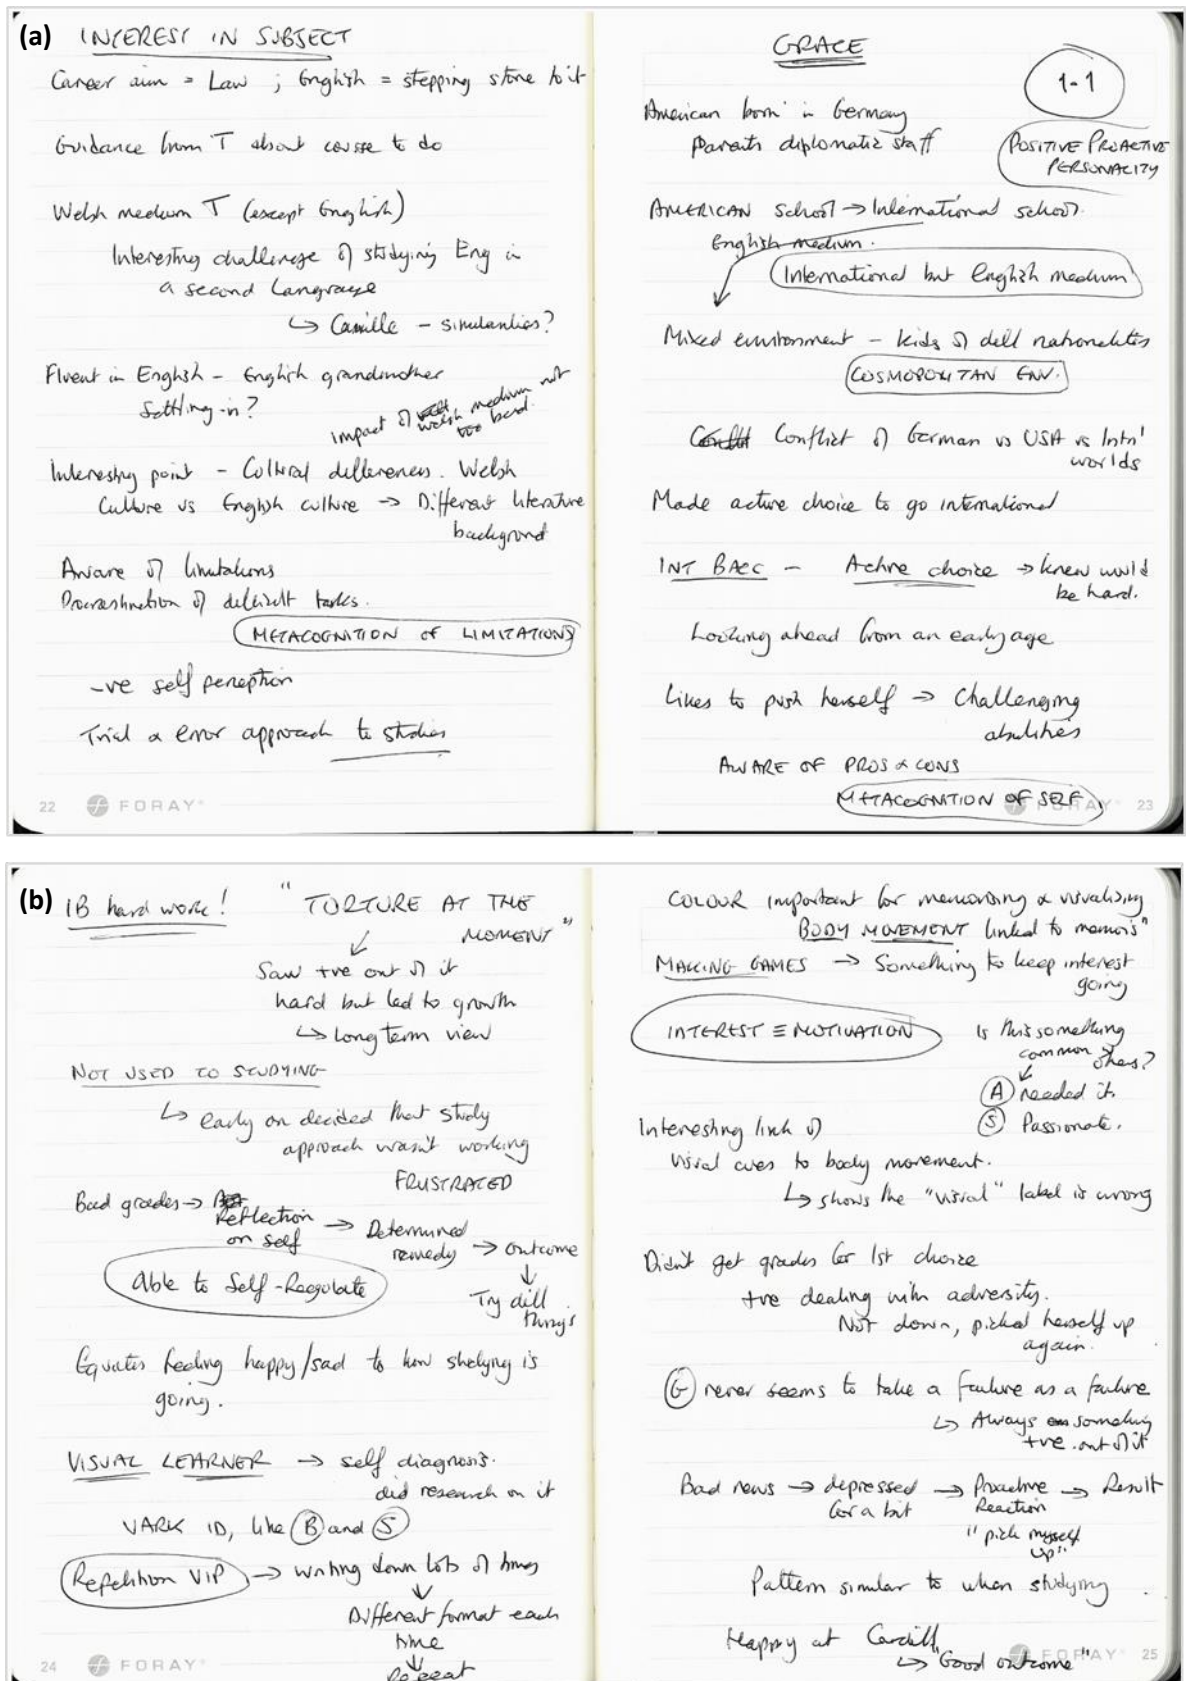 (a) INTEREST IN SUBJECT
Career aim = Law ; English = stepping stone to it
Guidance from T about course to do
Welsh medium T (except English)
Interesting challenge of studying Eng in
a second language
↳ Camille - similarities?
Fluent in English - English grandmother
Settling-in?
Impact of Welsh medium not
too bad.
Interesting point - Cultural differences. Welsh
Culture vs English culture → Different literature
background
Aware of limitations
Procrastination of difficult tasks.
METACOGNITION OF LIMITATIONS
-ve self perception
Trial & error approach to studies
22 FORAY
GRACE
1-1
American born in Germany
Parents diplomatic staff
POSITIVE PROACTIVE
PERSONALITY
AMERICAN school → International school.
English medium.
International but English medium
Mixed environment - kids of diff nationalites
COSMOPOLITAN ENV.
Conflict of German vs USA vs Intn'
worlds
Made active choice to go international
INT BACC - Active choice → knew would
be hard.
Looking ahead from an early age
Likes to push herself → Challenging
abilities
AWARE OF PROS & CONS
METACOGNITION OF SELF
FORAY 23
(b) IB hard work! "TORTURE AT THE
MOMENT"
↓
Saw +ve out of it
hard but led to growth
↳ Long term view
NOT USED TO STUDYING
↳ early on decided that study
approach wasn't working
FRUSTRATED
Bad grades → Reflection
on self → Determined
remedy → outcome
↓
Try diff
things
Able to Self-Regulate
Equates feeling happy/sad to how studying is
going.
VISUAL LEARNER → self diagnosis.
did research on it
VARK ID, like B and S
Repetition VIP → writing down lots of times
↓
Different format each
time
↓
Repeat
24 FORAY
COLOUR important for memorising & visualising
BODY MOVEMENT linked to memoris"
MAKING GAMES → Something to keep interest
going
INTEREST ≡ MOTIVATION
Is this something
common others?
↙
A needed it.
S Passionate.
Interesting link of
visual cues to body movement.
↳ shows the "visual" label is wrong
Didn't get grades for 1st choice
+ve dealing with adversity.
Not down, picked herself up
again.
G never seems to take a failure as a failure
↳ Always something
+ve out of it
Bad news → depressed
for a bit → Proactive
Reaction → Result
"pick myself
up"
Pattern similar to when studying.
Happy at Cardiff
↳ "Good outcome"
FORAY 25